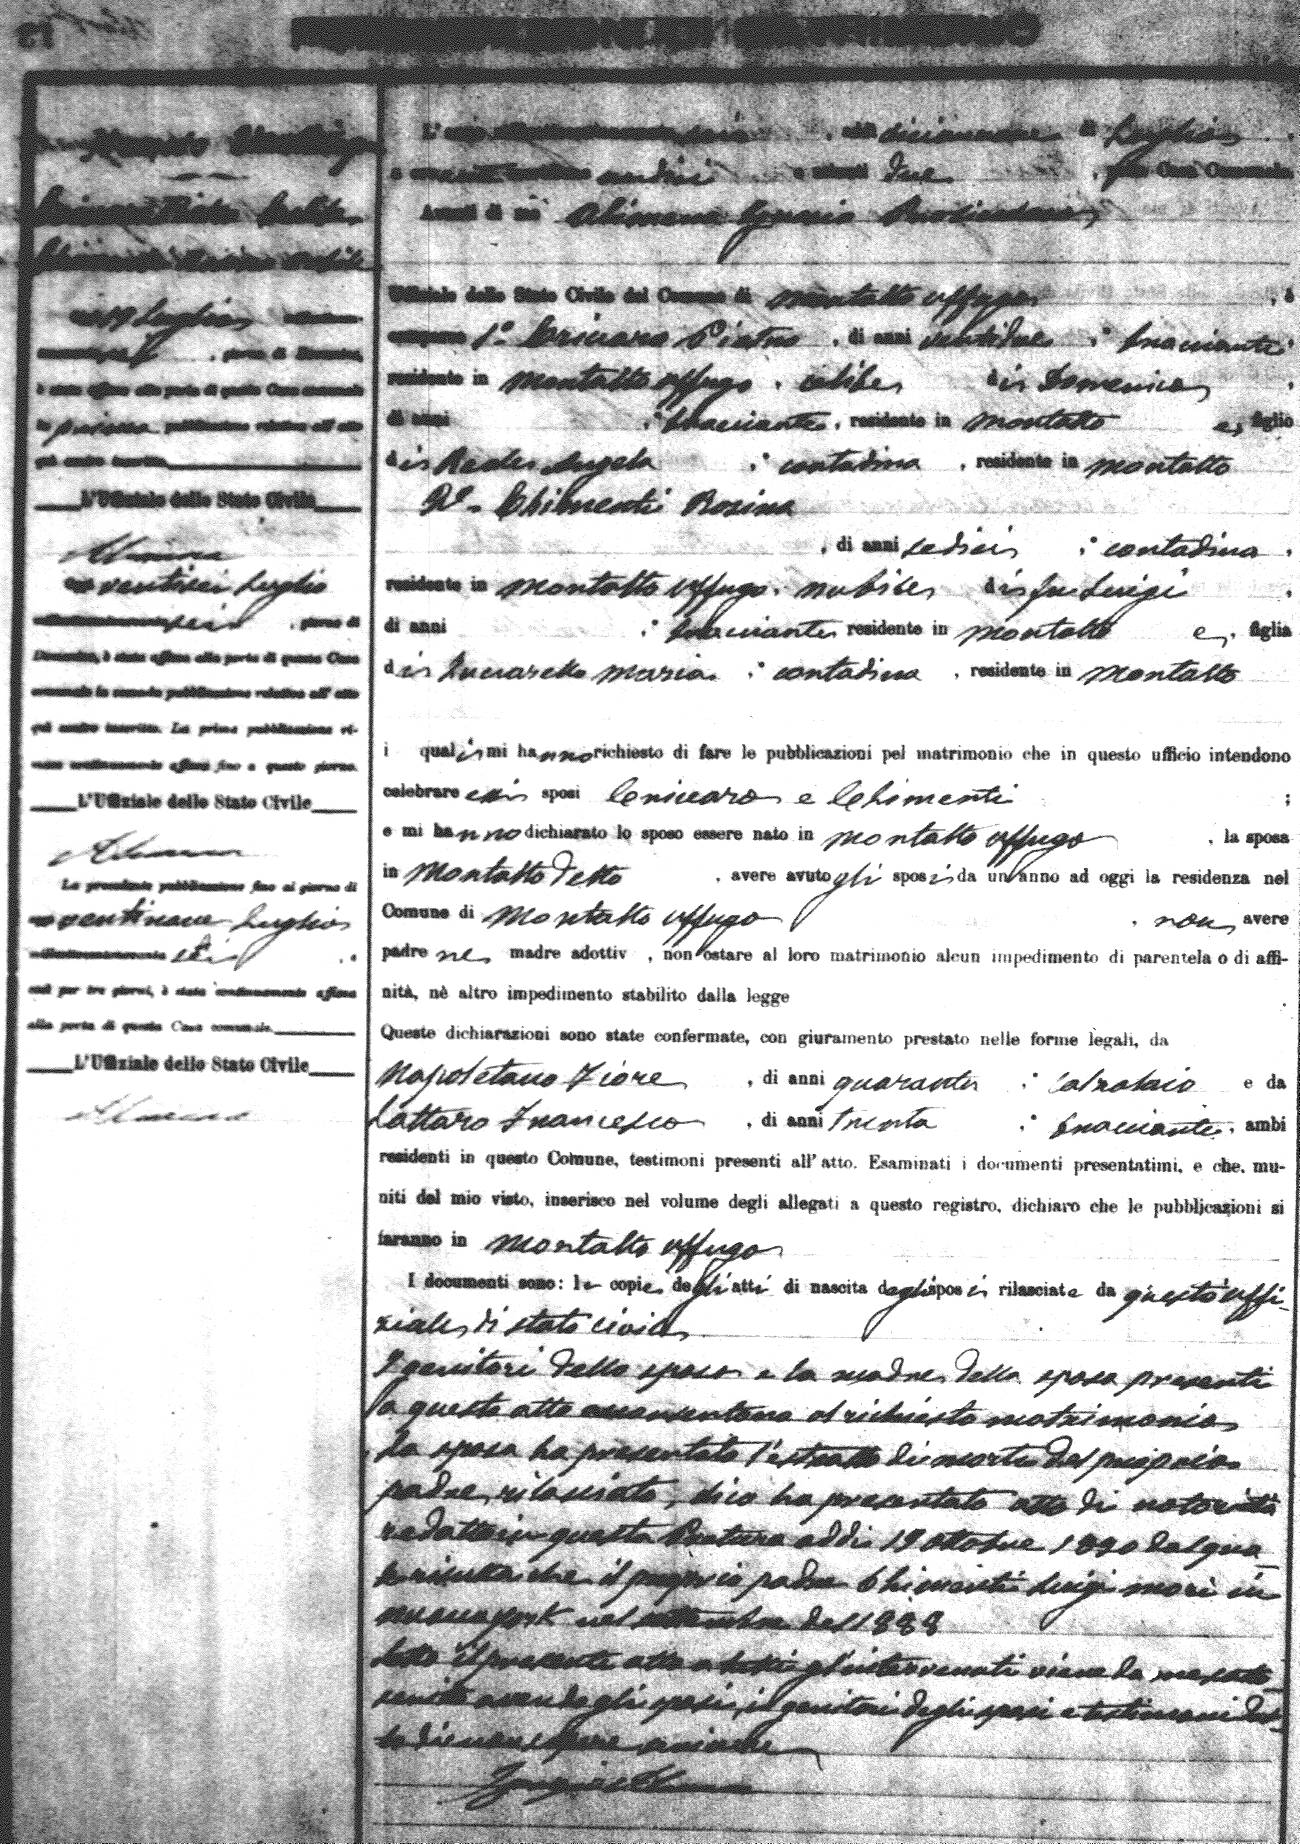 19 Luglio
è stata affissa alla porta di questa Casa comunale
la prima pubblicazione relativa all'atto
qui contro inscritto
L'Uffiziale dello Stato Civile
Alimena
ventisei Luglio
sei, giorno di
Domenica, è stata affissa alla porta di questa Casa
comunale la seconda pubblicazione relativa all'atto
qui contro inscritto. La prima pubblicazione ri-
mase continuamente affissa fino a questo giorno.
L'Uffiziale dello Stato Civile
Alimena
La precedente pubblicazione fino al giorno di
ventinove Luglio
sei, e
così per tre giorni, è stata continuamente affissa
alla porta di questa Casa comunale.
L'Uffiziale dello Stato Civile
Alimena
L'anno sei, addì diciannove di Luglio,
a ore undici e minuti due, nella Casa Comunale.
Avanti di me Alimena Ignazio
Uffiziale dello Stato Civile del Comune di Montalto Uffugo, è
comparso 1º Pietro, di anni ventidue, bracciante,
residente in Montalto Uffugo, celibe, di Domenico,
di anni , bracciante, residente in Montalto e, figlio
di Angela, contadina, residente in Montalto
2º Chimenti Rosina
, di anni sedici, contadina,
residente in Montalto Uffugo, nubile, di fu Luigi,
di anni , bracciante residente in Montalto e, figlia
di Maria, contadina, residente in Montalto
i quali mi hanno richiesto di fare le pubblicazioni pel matrimonio che in questo ufficio intendono
celebrare essi sposi e Chimenti;
e mi hanno dichiarato lo sposo essere nato in Montalto Uffugo, la sposa
in Montalto detto, avere avuto gli sposi da un anno ad oggi la residenza nel
Comune di Montalto Uffugo, non avere
padre ne madre adottiv , non ostare al loro matrimonio alcun impedimento di parentela o di affi-
nità, nè altro impedimento stabilito dalla legge.
Queste dichiarazioni sono state confermate, con giuramento prestato nelle forme legali, da
Napoletano Fiore, di anni quaranta, calzolaio e da
Lattaro Francesco, di anni trenta, bracciante, ambi
residenti in questo Comune, testimoni presenti all'atto. Esaminati i documenti presentatimi, e che, mu-
niti del mio visto, inserisco nel volume degli allegati a questo registro, dichiaro che le pubblicazioni si
faranno in Montalto Uffugo
I documenti sono: le copie degli atti di nascita degli sposi rilasciate da questo uffi-
ziale di stato civile
I genitori dello sposo e la madre della sposa presenti
a questo atto acconsentono al richiesto matrimonio
La sposa ha presentato l'estratto di morte del proprio
padre rilasciato, dico ha presentato atto di notorietà
redatto in questa Pretura addì 19 ottobre 1890 dal qua-
le risulta che il proprio padre Chimenti Luigi morì in
nuova york nel settembre del 1888
Letto il presente atto a tutti gl'intervenuti viene da me sotto
scritto avendo gli sposi, i genitori degli sposi e testimoni det-
to di non sapere firmare
Ignazio Alimena